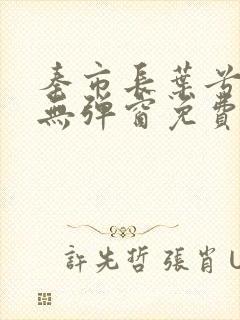 秦市長葉兮
無彈窗免費
許先哲 張肖 U